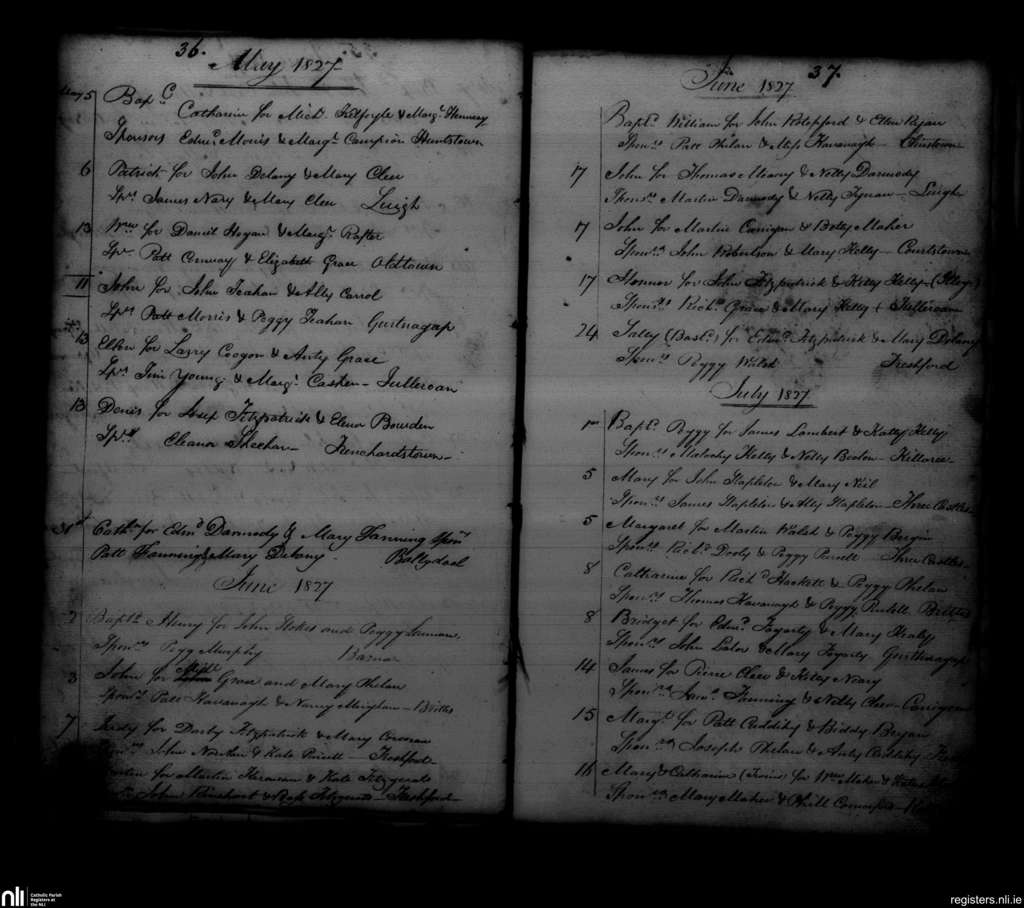 36.
May 1827
May 5 Bapd
Catharine for Mich. Kilfoyle & Margt Hennesy
Sponsors Edmd Morris & Margt Campion Huntstown
6 Patrick for John Delany & Mary Clew
Sprs James Nary & Mary Clew Lurgh
13 Wm for Daniel Hogan & Margt Rafter
Spr Patt Conway & Elizabeth Grace Oldtown
11 John for John Teahan & Ally Carrol
Sprs Patt Morris & Peggy Teahan Gurtnagap
13 Ellen for Lazry Coogan & Anty Grace
Sprs Jim Young & Margt Casken - Tulleroan
13 Denis for Josep Fitzpatrick & Elenor Bowden
Sprs Eleanor Sheehan - Frenchardstown -
31st Cathn for Edmd Darmody & Mary Fanning Sponrs
Patt Fanning & Mary Delany Ballydaol
June 1827
2 Bapd Henry for John Stokes and Peggy
Sponrs Pegg Murphy Barna
3 John for Grace and Mary Phelan
Sponrs Patt Kavanagh & Nanny - Brittas
7 Judy for Darby Fitzpatrick & Mary
John & Kate Pursell - Freshford -
for Martin & Kate Fitzgerald
John & Bess Fitzgerald - Freshford -
37.
June 1827
Bapd William for John & Ellen Ryan
Sponrs Patt Phelan & Miss Kavanagh - Clinstown
17 John for Thomas Meany & Nelly Darmody
Sponrs Martin Darmody & Nelly Tynan - Lurgh
17 John for Martin Carrigan & Betty Maher
Sponrs John Robertson & Mary Kelly - Courtstown
17 Honnor for John Fitzpatrick & Kitty Kelly
Sponrs Richd Grace & Mary Kelly Tulleroan
24 Tally (Basd) for Edmd Fitzpatrick & Mary Delany
Sponrs Peggy Walsh Freshford
July 1827
1st Bapd Peggy for James Lambert & Katty Kelly
Sponrs Malachy Kelly & Nelly - Killaree -
5 Mary for John Stapleton & Mary Neil
Sponrs James Stapleton & Ally Stapleton - Three Castles
5 Margaret for Martin Walsh & Peggy Bergin
Sponrs Richd Dooly & Peggy Pursell Three Castles -
8 Catharine for Richd Hackett & Peggy Phelan
Sponrs Thomas Kavanagh & Peggy Brittas
8 Bridget for Edmd Fogarty & Mary Healy
Sponrs John Lalor & Mary Fogarty Gurtnagap
14 James for Pierce Clew & Kitty Neary
Sponrs Fanning & Nelly Clew -
15 Margt for Patt Cuddihy & Biddy Bryan
Sponrs Joseph Phelan & Anty Cuddihy
16 Mary & Catharine (Twins) for Wm Maher &
Sponrs Mary Maher & Phill Comerford
nli
Catholic Parish
Registers at
the NLI
registers.nli.ie